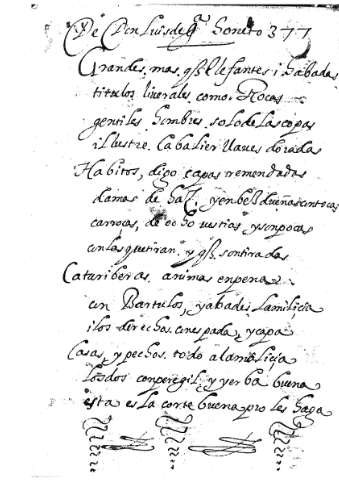 De Don Luis de Gª Soneto 377
Grandes, mas q̃ elefantes i habadas
titulos liverales como Rocas
gentiles hombres, solo de las copas
illustre Cabalier llaves doradas
Habitos, digo capas remendadas
damas de haz, y enbes dueñas con tocas
carrocas, de ocho vestios, y son pocas
con las que tiran y q̃ son tiradas
Catariberas animas en pena
con Bartulos, y abades la milicia
i los derechos con espada, y capa
Casas, y pechos todo a la malicia
lodos con peregil, y yerba buena
esta es la corte buena pro les haga